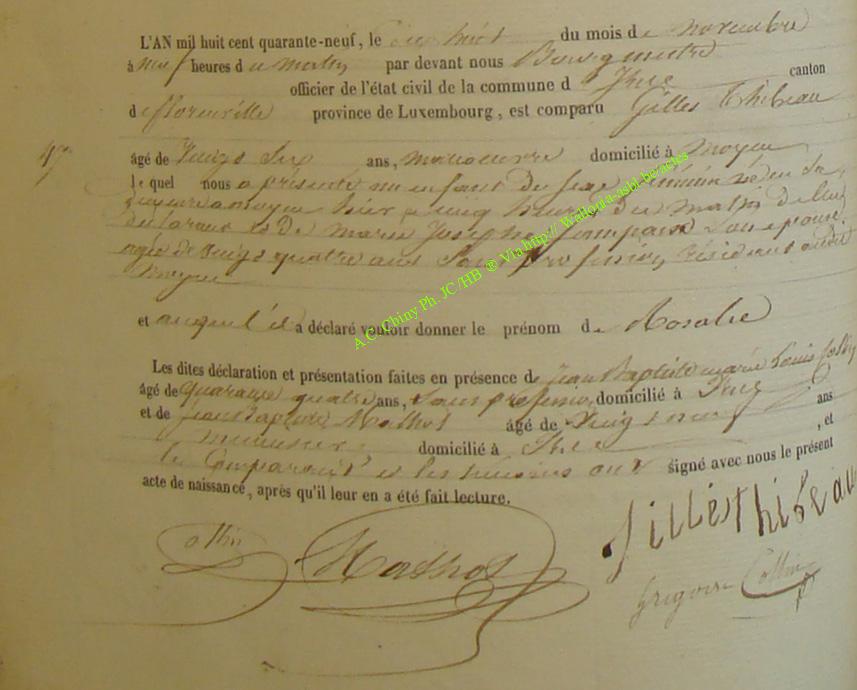 L'AN mil huit cent quarante-neuf, le dix huit du mois de novembre
à neuf heures du matin par devant nous Bourgmestre
officier de l'état civil de la commune d canton
de florenville province de Luxembourg, est comparu Gilles Thibeau
47 âgé de vingt six ans, manoeuvre domicilié à Moyen
le quel nous a présenté un enfant du sexe féminin né en sa
demeure à moyen hier a cinq heures du matin de lui
déclarant et de Marie Josephe son epouse
agée de vingt quatre ans Sans profession, résidant audit
Moyen
et auquel il a déclaré vouloir donner le prénom de Rosalie
Les dites déclaration et présentation faites en présence de Jean Baptiste marie Louis Collin
âgé de quarante quatre ans, sans profession, domicilié à ans
et de Jean Baptiste Mathot âgé de vingt neuf , et
domicilié à
le Comparant et les témoins ont signé avec nous le présent
acte de naissance, après qu'il leur en a été fait lecture.
Collin Mathot Gilles thibeau
Grégoire Collin
A.C. Chiny Ph. JC/HB ® Via http:// Wallonia-asbl-be-actes